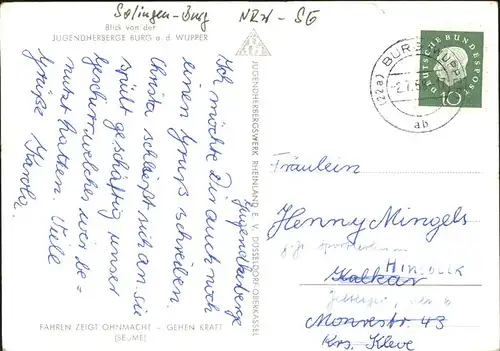 Solingen-Burg NRW - SG
Blick von der
JUGENDHERBERGE BURG a. d. WUPPER
Ich möchte Dir auch noch
einen Gruß schreiben.
Christa schließt sich an. sie
spült geschäftig unser
Geschirr welches wir be=
nutzt hatten. Viele
Grüße Karola
FAHREN ZEIGT OHNMACHT – GEHEN KRAFT
(SEUME)
JUGENDHERBERGSWERK RHEINLAND E. V. DÜSSELDORF-OBERKASSEL
Jugendherberge
(22a) BURG WUPPER
ab
DEUTSCHE BUNDESPOST
10
Fräulein
Henny Mingels
Kalkar
Monrestr. 43
Krs. Kleve